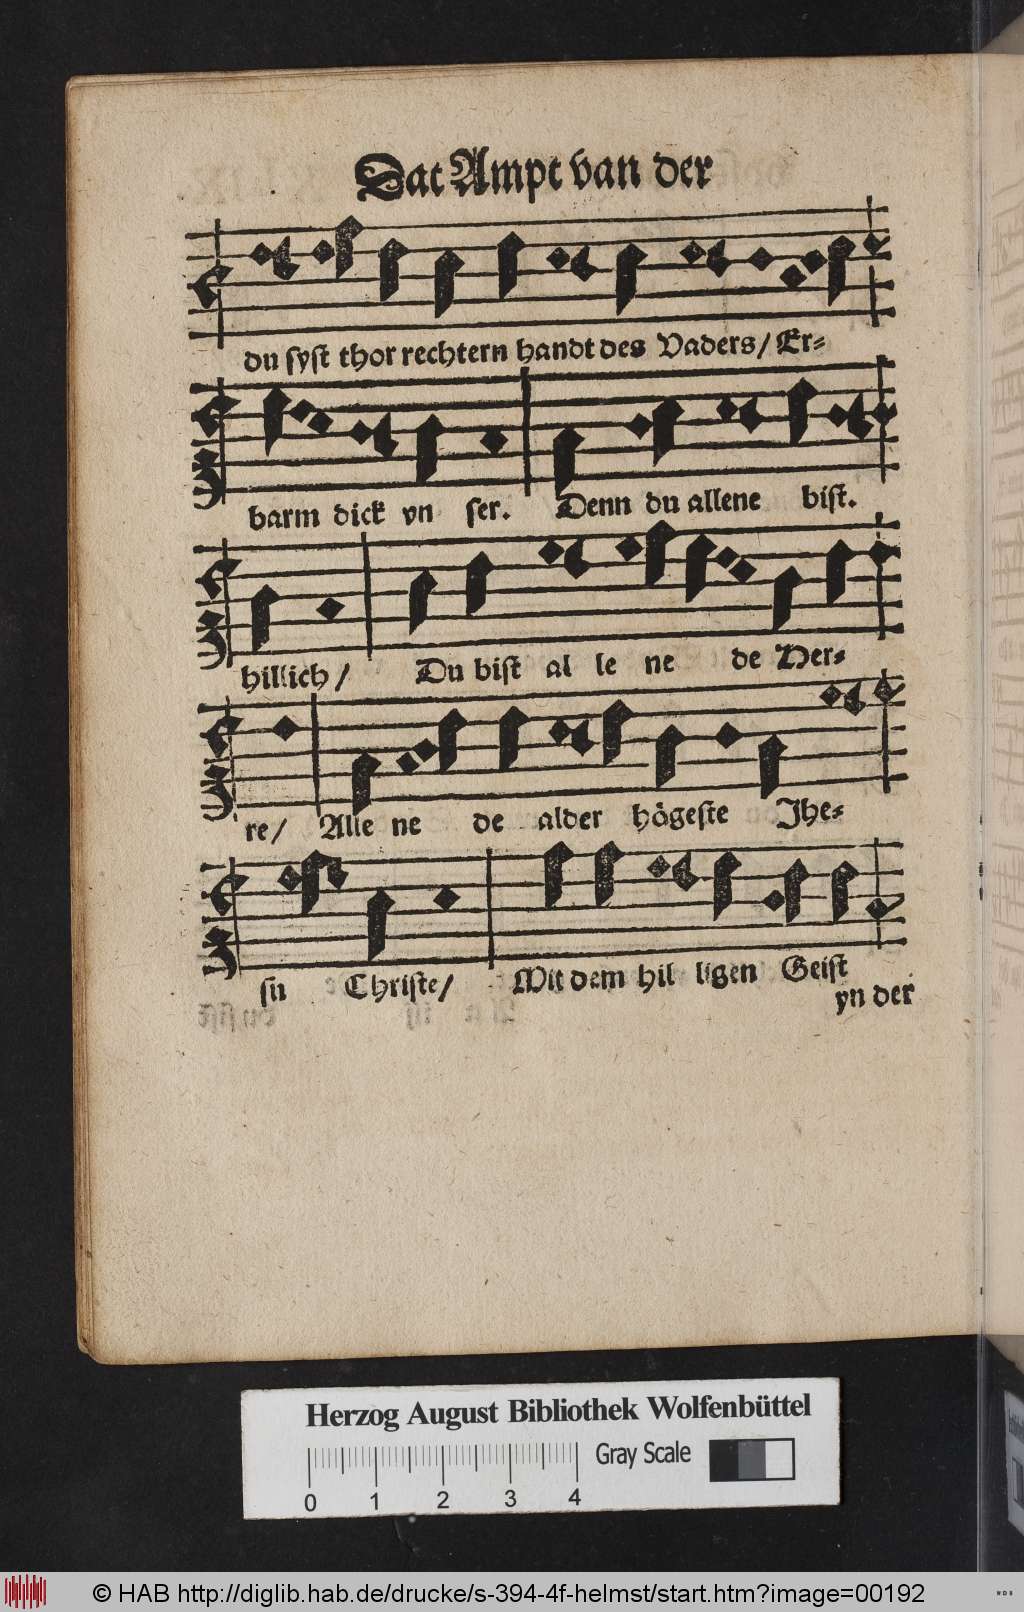 Dat Ampt van der
du syst thor rechtern handt des Vaders/ Er-
barm dick vn ser. Denn du allene bist.
hillich/ Du bist al le ne de Her-
re/ Alle ne de alder högeste Jhe-
su Christe/ Mit dem hil ligen Geist
yn der
Herzog August Bibliothek Wolfenbüttel
Gray Scale
0 1 2 3 4
© HAB http://diglib.hab.de/drucke/s-394-4f-helmst/start.htm?image=00192